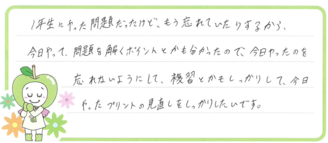 1年生にやった問題だったけど、もう忘れていたりするから、
今日やって、問題を解くポイントとかも分かったので、今日やったのを
忘れないようにして、復習とかもしっかりして、今日
やったプリントの見直しもしっかりしたいです。